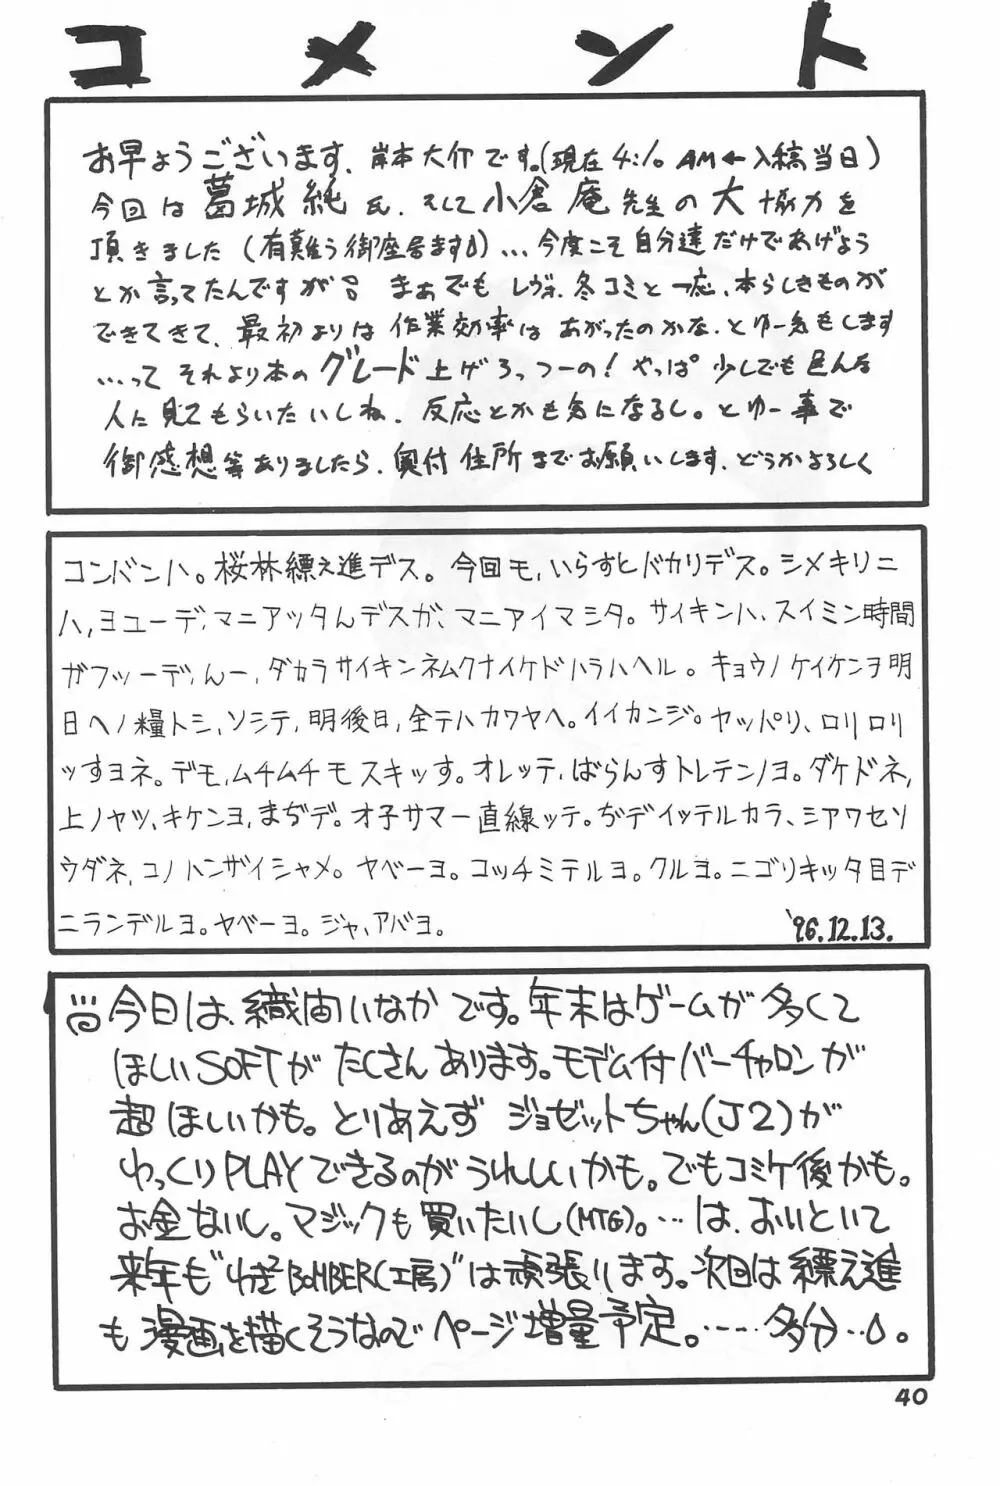 コメント
お早ようございます、岸本大介です。(現在4:10 AM←入稿当日)
今回は葛城純氏、そして小倉庵先生の大協力を
頂きました(有難う御座居ます)…今度こそ自分達だけであげよう
とか言ってたんですが まぁでも レヴォ、冬コミと一応、本らしきものが
できてきて、最初よりは作業効率は あがったのかな、とゆー気もします
…って それより本のグレード上げろっつーの！やっぱ 少しでも色んな
人に見てもらいたいしね、反応とかも気になるし。とゆー事で
御感想等ありましたら、奥付住所までお願いします、どうかよろしく
コンバンハ。桜林縹え進デス。今回モ、いらすとバカリデス。シメキリニ
ハ、ヨユーデ、マニアッタんデスガ、マニアイマシタ。サイキンハ、スイミン時間
ガフツーデ、んー、ダカラサイキンネムクナイケドハラハヘル。キョウノケイケンヲ明
日ヘノ糧トシ、ソシテ、明後日、全テハカワヤヘ。イイカンジ。ヤッパリ、ロリロリ
ッすヨネ。デモ、ムチムチモスキッす。オレッテ、ばらんすトレテンノヨ。ダケドネ、
上ノヤツ、キケンヨ、まぢデ。オ子サマ一直線ッテ。ぢデイッテルカラ、シアワセソ
ウダネ、コノハンザイシャメ。ヤベーヨ。コッチミテルヨ。クルヨ。ニゴリキッタ目デ
ニランデルヨ。ヤベーヨ。ジャ、アバヨ。 '96.12.13.
今日は、織田いなかです。年末はゲームが多くて
ほしいSOFTがたくさんあります。モデム付バーチャロンが
超ほしいかも。とりあえず ジョゼットちゃん(J2)が
ゆっくりPLAYできるのがうれしいかも。でもコミケ後かも。
お金ないし。マジックも買いたいし(MTG)。…は、おいといて
来年も"わざBOMBER(工房)"は頑張ります。次回は縹え進
も漫画を描くそうなのでページ増量予定。……多分…。
40